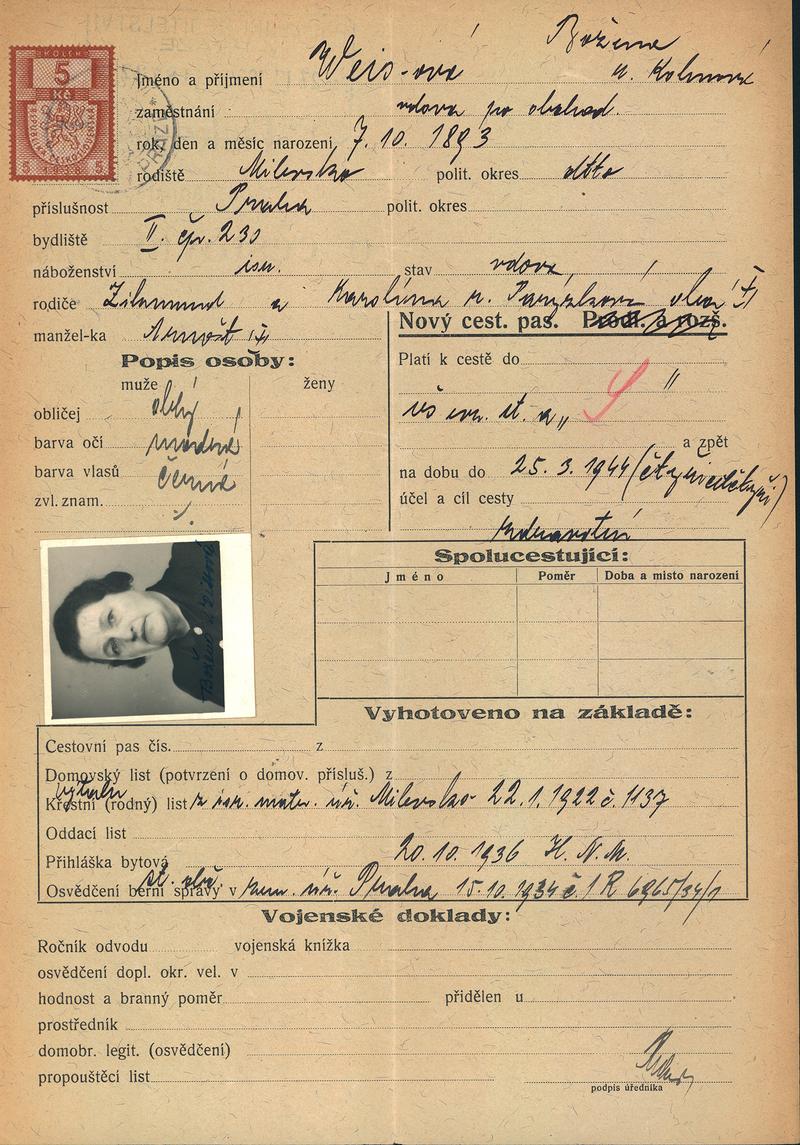 KOLEK
5
Kč
5 5
Božena
Jméno a příjmení Weis-ová n. Kohnová
zaměstnání vdova po obchod.
rok, den a měsíc narození 7. 10. 1893
rodiště Milevsko polit. okres dtto
příslušnost Praha polit. okres
bydliště II. čp. 230
náboženství isr. stav vdova
rodiče Zikmund a Karolína r.
manžel-ka Arnošt
Nový cest. pas. Prodl. a rozš.
Popis osoby:
muže ženy
obličej
barva očí modrá
barva vlasů černá
zvl. znam.
Platí k cestě do
vš evr. st. a „ S "
a zpět
na dobu do 25. 3. 1944
účel a cíl cesty
zdravotní
Spolucestující:
Jméno Poměr Doba a místo narození
Vyhotoveno na základě:
Cestovní pas čís. z
Domovský list (potvrzení o domov. přísluš.) z
Křestní (rodný) list z isr. matr. úř. Milevsko 22. 1. 1922 č. 1137
Oddací list
Přihláška bytová 20. 10. 1936 H. N. M.
st. obč.
Osvědčení berní správy v zem. úř. Praha 15. 10. 1934 č. 1 R 6965/34/1
Vojenské doklady:
Ročník odvodu vojenská knížka
osvědčení dopl. okr. vel. v
hodnost a branný poměr přidělen u
prostředník
domobr. legit. (osvědčení)
propouštěcí list
podpis úředníka